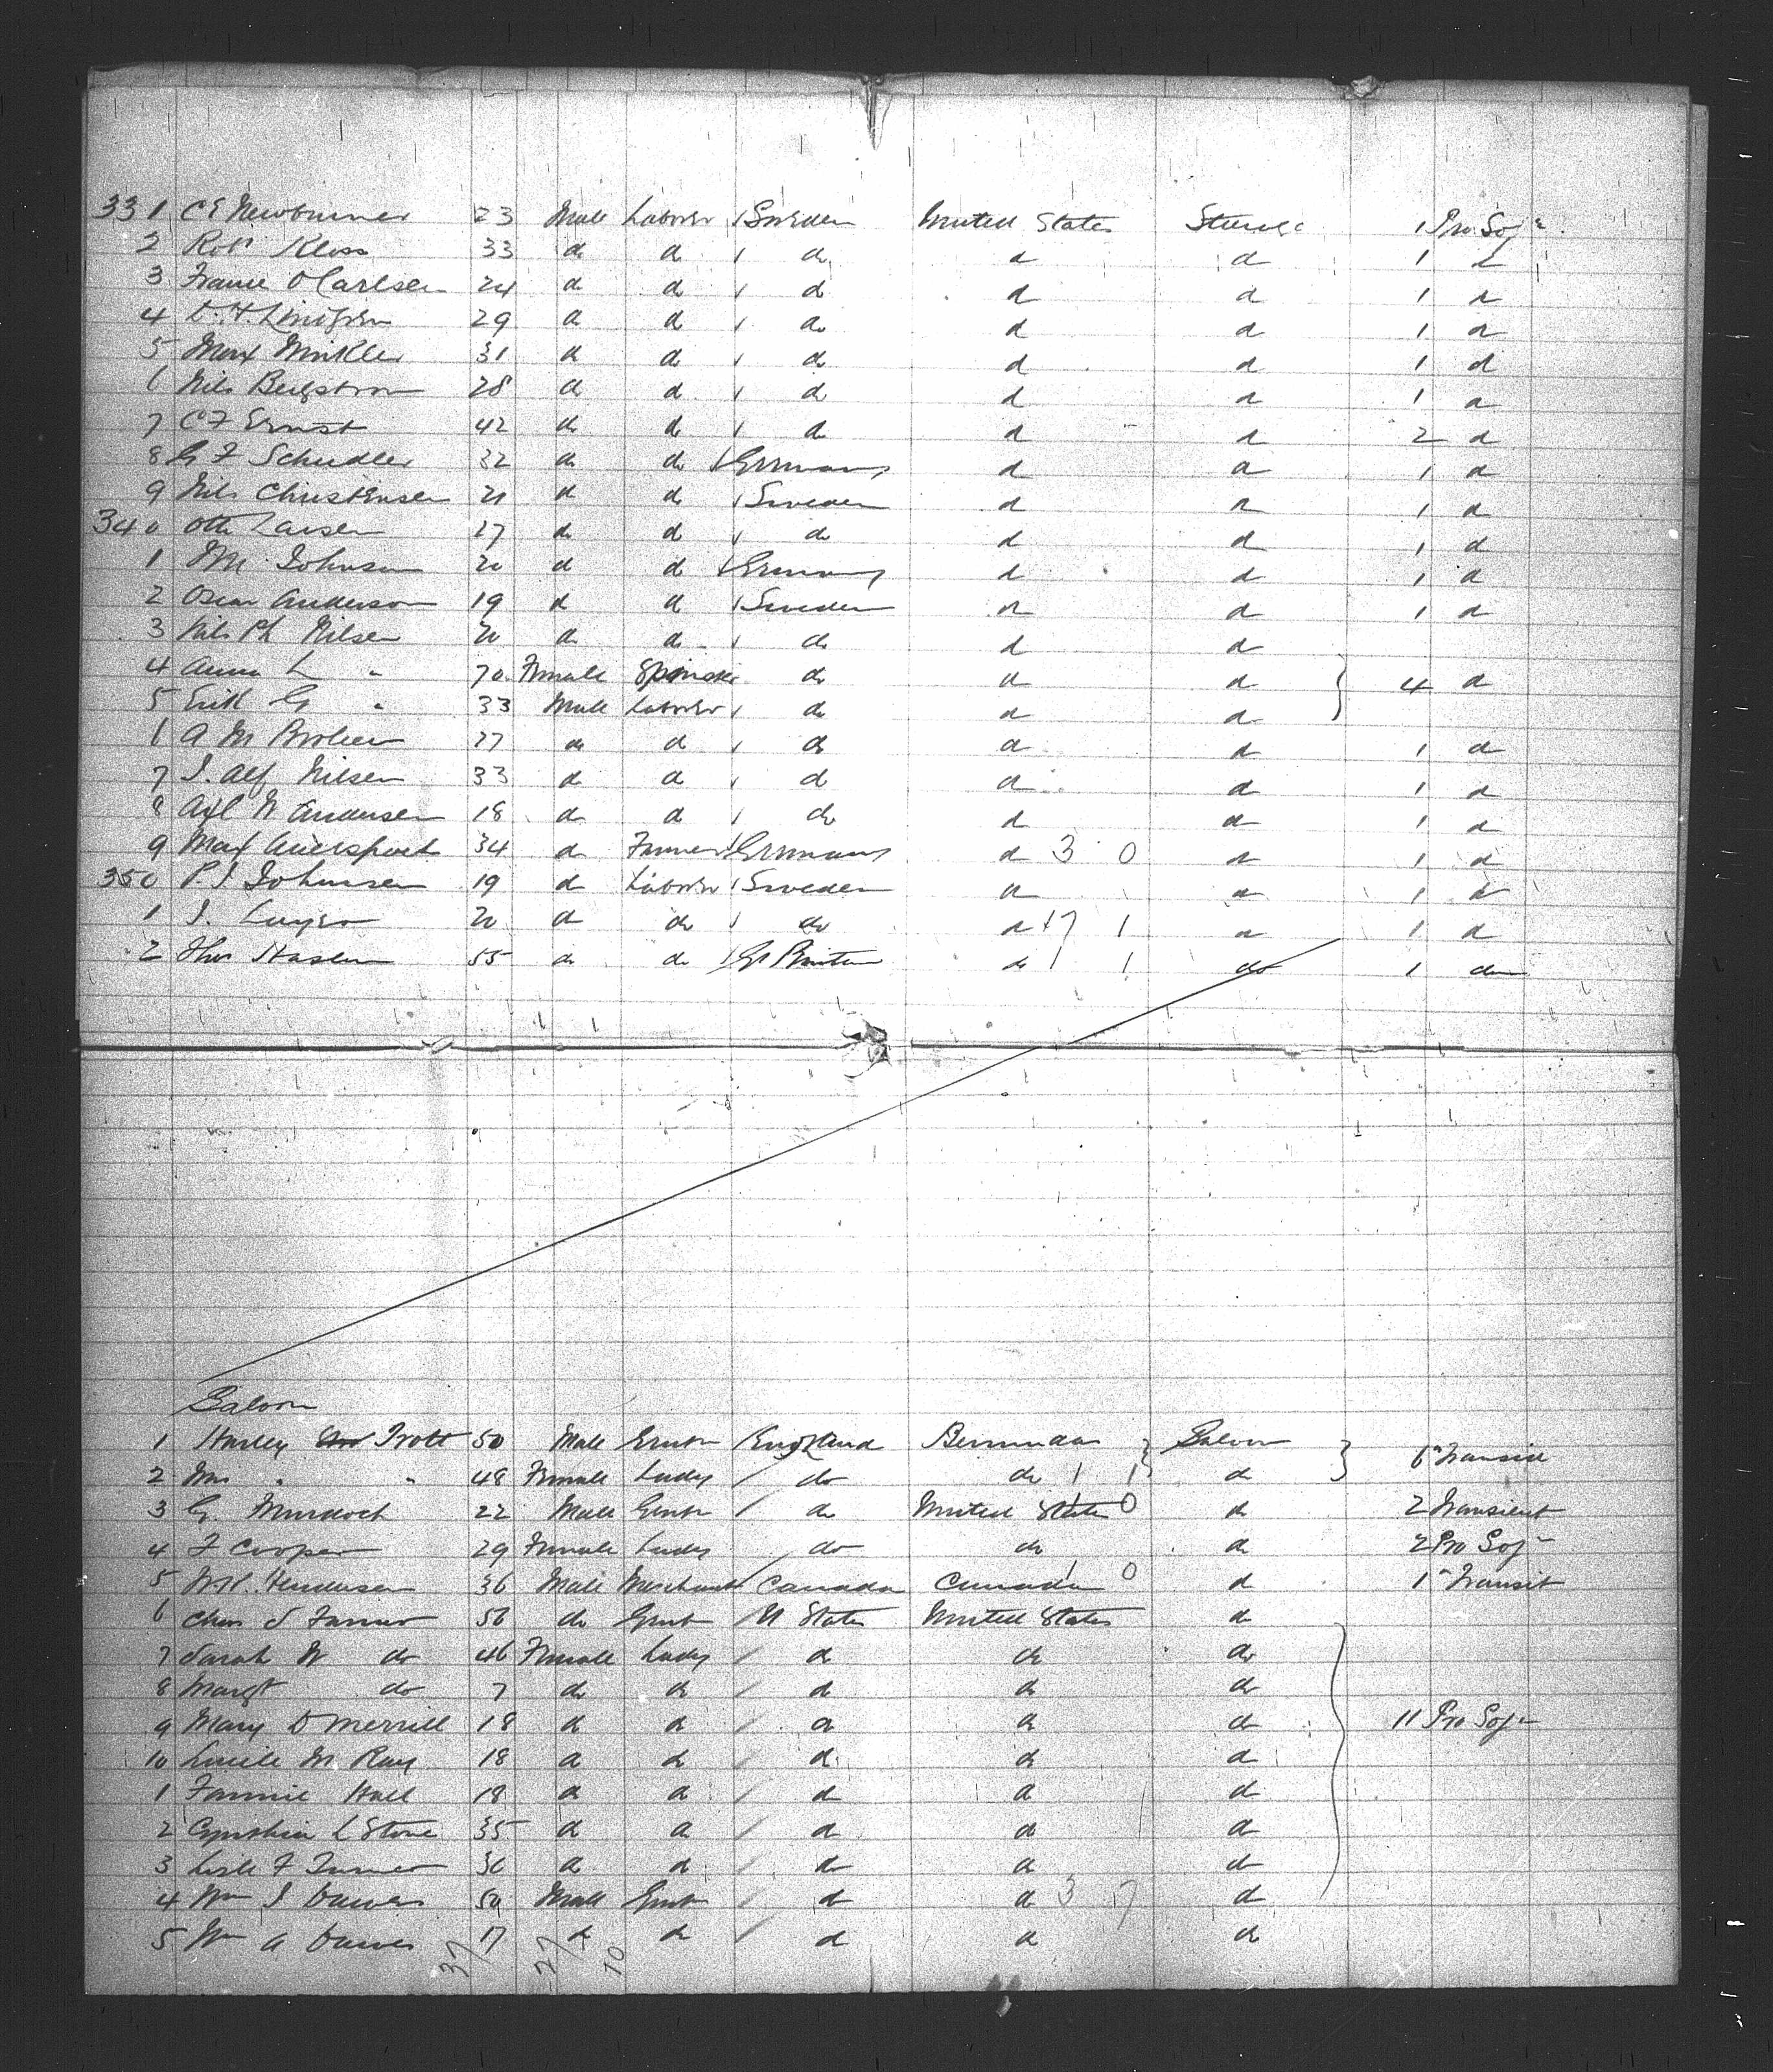 331 C E Newburner 23 Male Laborer / Sweden United States Steerage 1 Pro Soj-
2 Robt Kloss 33 do do / do do do 1 d
3 Franse O Carlsen 24 d do / d d d 1 d
4 29 d do / do d d 1 d
5 Max Winkler 31 d do / do d d 1 d
6 Nils Bergstrom 28 d do / d d d 1 d
7 C F Ernst 42 do do / do d d 2 d
8 G F Schudler 32 do do / Germany d d 1 d
9 Nils Christensen 21 d do / Sweden d d 1 d
340 Otto Larsen 27 do d / do d d 1 d
1 M Johnson 20 d d / Germany d d 1 d
2 Oscar Anderson 19 d d / Sweden d d 1 d
3 Nils Ph Nilsen 20 do do / do d d
4 Anna L " 70 Female Spinster do d d } 4 d
5 Erik G " 33 Male Laborer / do d d
6 A M 27 do d / do d d 1 d
7 J. Alf Nilsen 33 d d / d d d 1 d
8 Axl W Andersen 18 d d / do d d 1 d
9 Max 34 d Farmer / Germany d 3 0 d 1 d
350 P. J Johnsen 19 d Laborer / Sweden d d 1 d
1 J. 20 d do / do d 17 1 d 1 d
2 Thos 55 do do / Gt Britain do 1 1 do 1 do
Saloon
1 Harley Trott 50 Male Gent / England Bermuda } Saloon } 6 Transit
2 Mrs " " 48 Female Lady / do do 1 1 d
3 G. Murdoch 22 Male Gent / do United States 0 d 2 Transient
4 F Cooper 29 Female Lady do do d 2 Pro Soj-
5 Henderson 36 Male Merchant / Canada Canada 1 0 d 1 Transit
6 Chas S Farmer 56 do Gent / U States United States d
7 Sarah W do 46 Female Lady / d do do
8 Margt do 7 do do / d do do
9 Mary D Merrill 18 d d / d d do 11 Pro Soj-
10 Lucile M Ray 18 d do / d do d
1 Fannie Hall 18 d d / d d d
2 Cynthia L Stone 35 d d / d d d
3 F Turner 36 d d / do d do
4 Wm J Dawes 50 Male Gent / d d 3 7 d
5 Wm A Dawes 17 do do / d d do
37 27 10